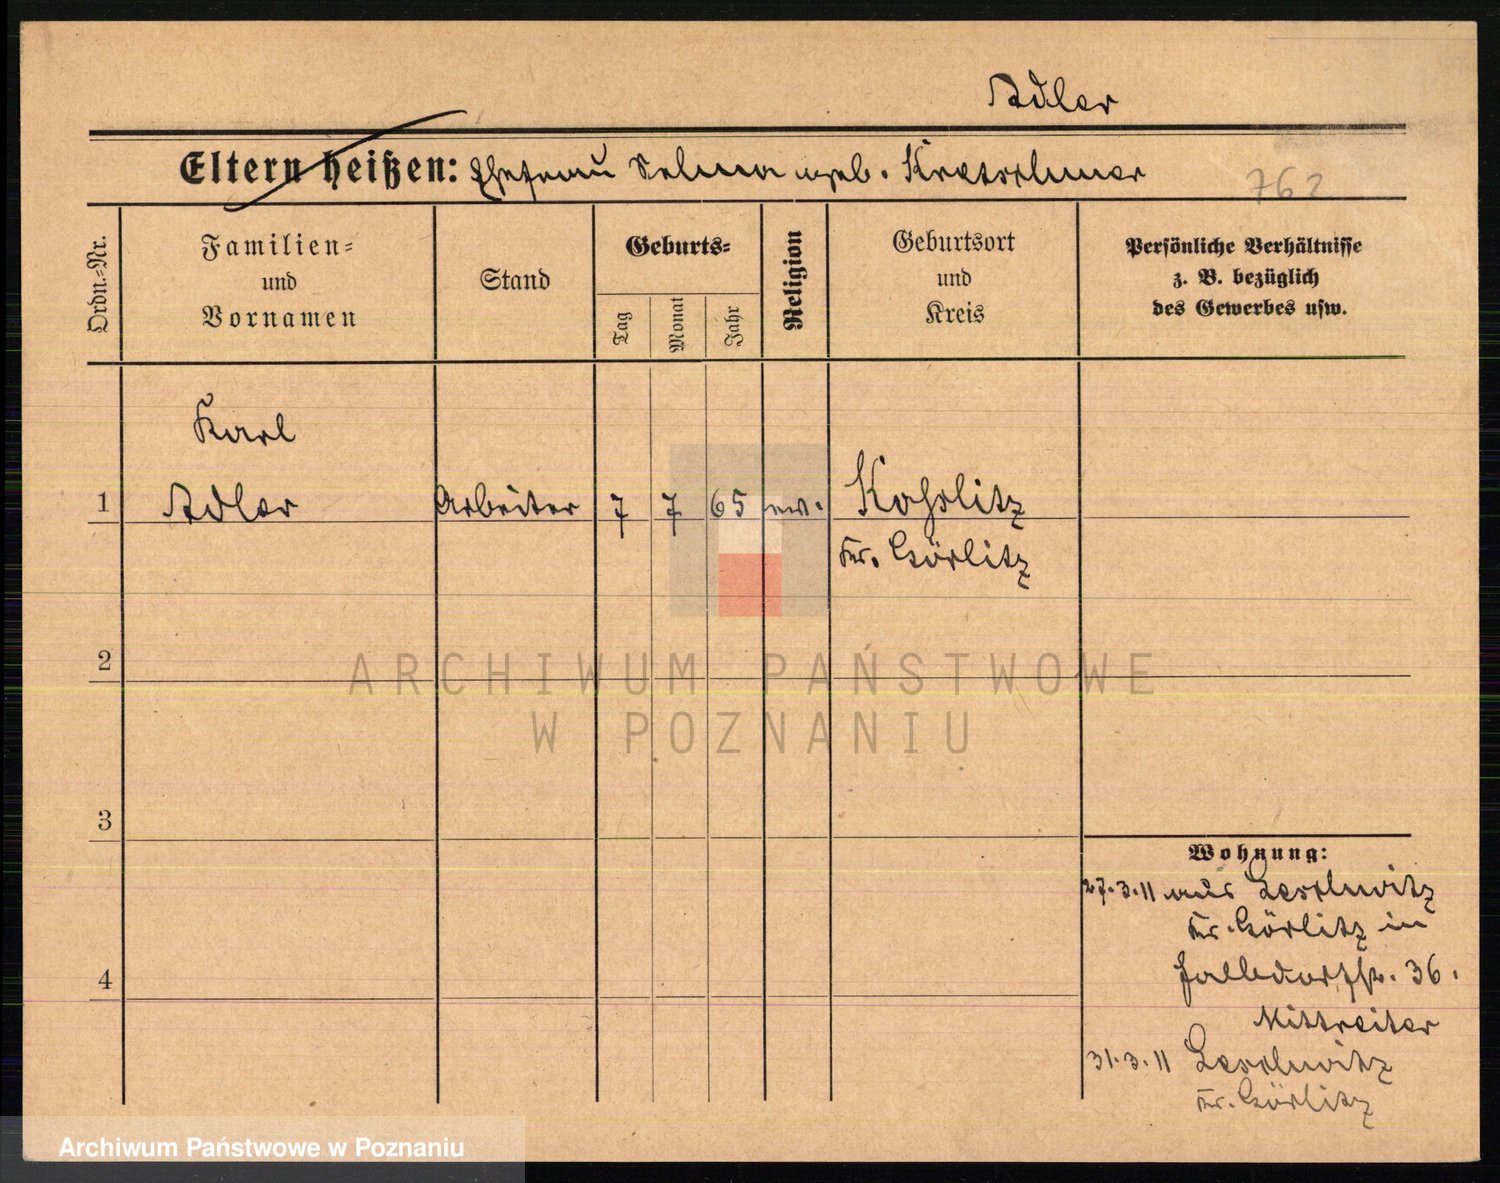 Adler
Eltern heißen: Ehefrau Selma geb. Kretschmer
762
Ordn.=Nr.
Familien=
und
Vornamen
Stand
Geburts=
Tag
Monat
Jahr
Religion
Geburtsort
und
Kreis
Persönliche Verhältnisse
z. B. bezüglich
des Gewerbes usw.
Karl
1 Adler Arbeiter 7 7 65 ev. Koslitz
Kr. Görlitz
2
ARCHIWUM PAŃSTWOWE
W POZNANIU
3
Wohnung:
27.3.11 aus Leschwitz
Kr. Görlitz in
36.
4
31.3.11 Leschwitz
Kr. Görlitz
Archiwum Państwowe w Poznaniu